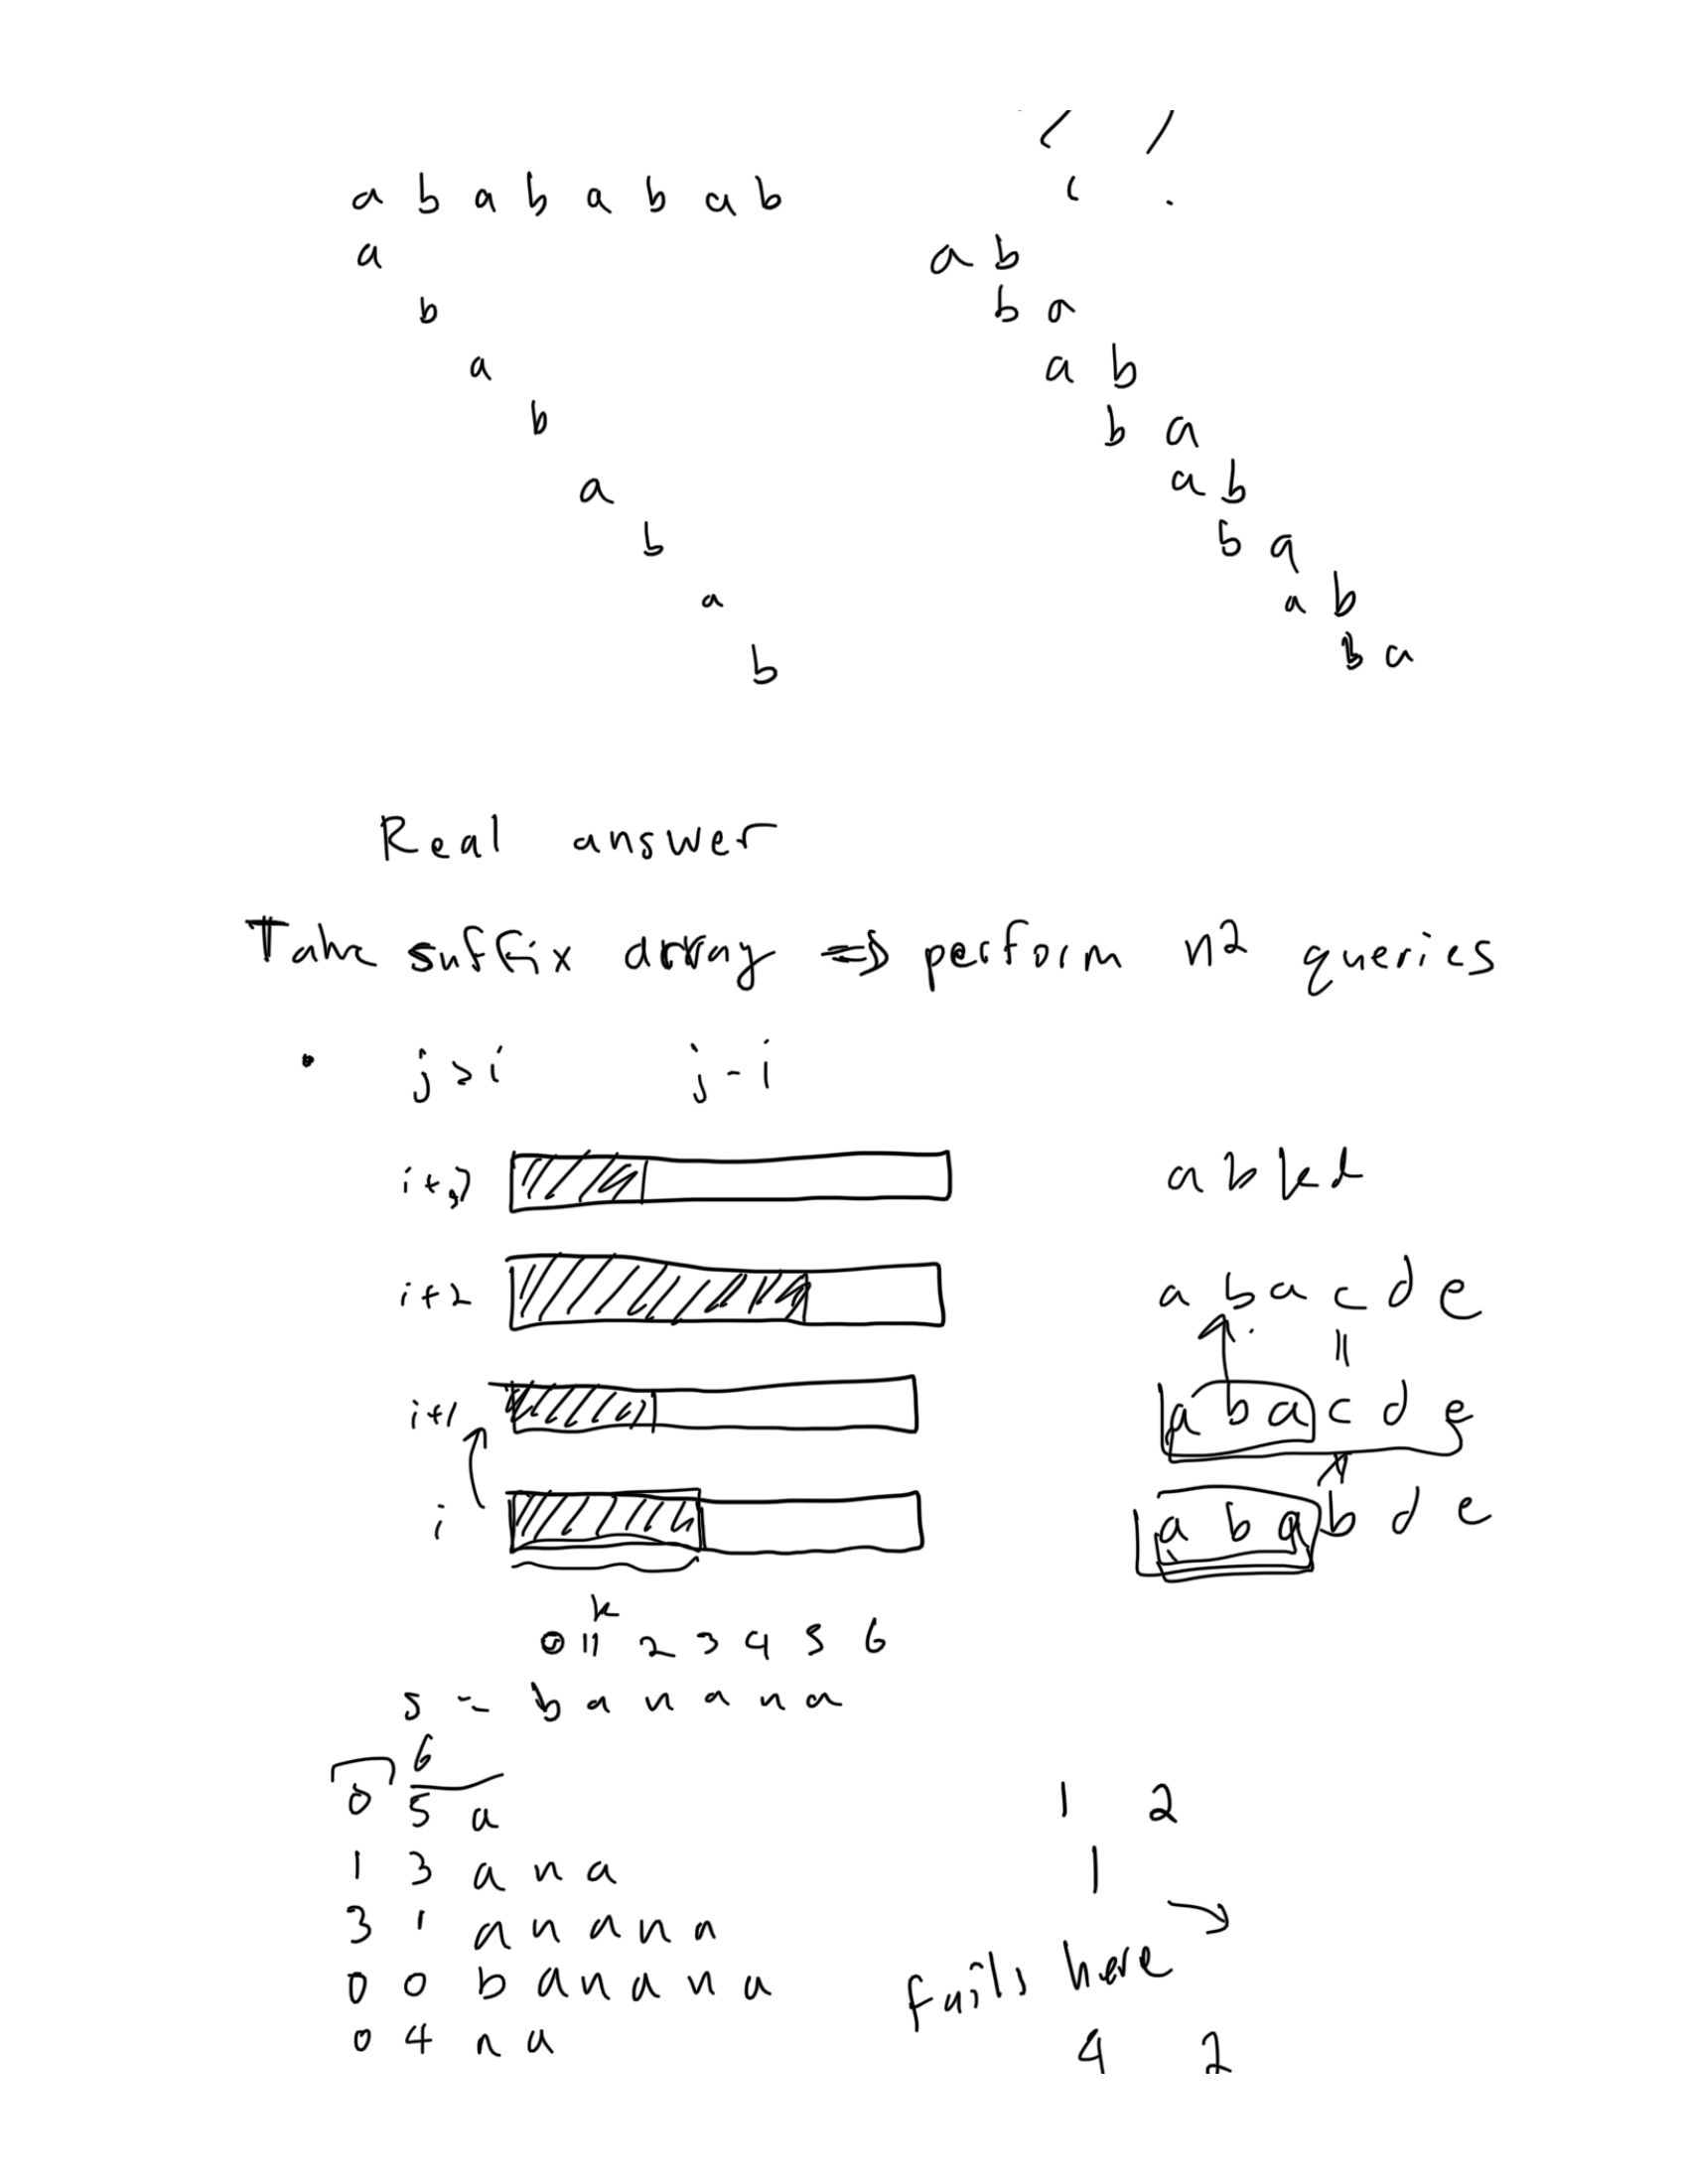 a b a b a b a b
a
b
a
b
a
b
a
b
a b
b a
a b
b a
a b
b a
a b
b a
Real answer
Take suffix array => perform n² queries
• j > i j - i
i+3
i+2
i+1
i
a b
a b a c d e
=
a b a c d e
a b a b d e
k
0 1 2 3 4 5 6
s = b a n a n a
6
0 5 a
1 3 a n a
3 1 a n a n a
0 0 b a n a n a
0 4 n a
1 2
1
fails here
4 2